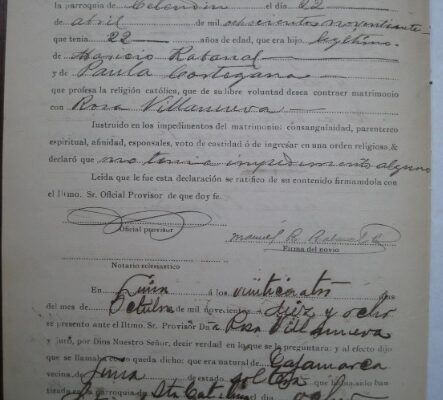 la parroquia de Celendín el día 22
de abril de mil ochocientos noventiseis
que tenía 22 años de edad, que era hijo legítimo
de Mauricio Rabanal
y de Paula Cortegana
que profesa la religión católica, que de su libre voluntad desea contraer matrimonio
con Rosa Villanueva
Instruido en los impedimentos del matrimonio: consanguinidad, parentezco
espiritual, afinidad, esponsales, voto de castidad ó de ingresar en una orden religiosa, &
declaró que no tenía impedimento alguno
Leída que le fué esta declaración se ratificó de su contenido firmándola con
el Iltmo. Sr. Oficial Provisor de que doy fe.
Oficial provisor
Manuel R. Rabanal C.
Firma del novio
Notario eclesiástico
En Lima á los veinticuatro días
del mes de Octubre de mil novecientos diez y ocho
se presentó ante el Iltmo. Sr. Provisor Da Rosa Villanueva
y juró, por Dios Nuestro Señor, decir verdad en lo que se le preguntara: y al efecto dijo
que se llamaba como queda dicho: que era natural de Cajamarca
vecina de Lima de estado soltera que había sido bau
tizada en la parroquia de Sta Catalina